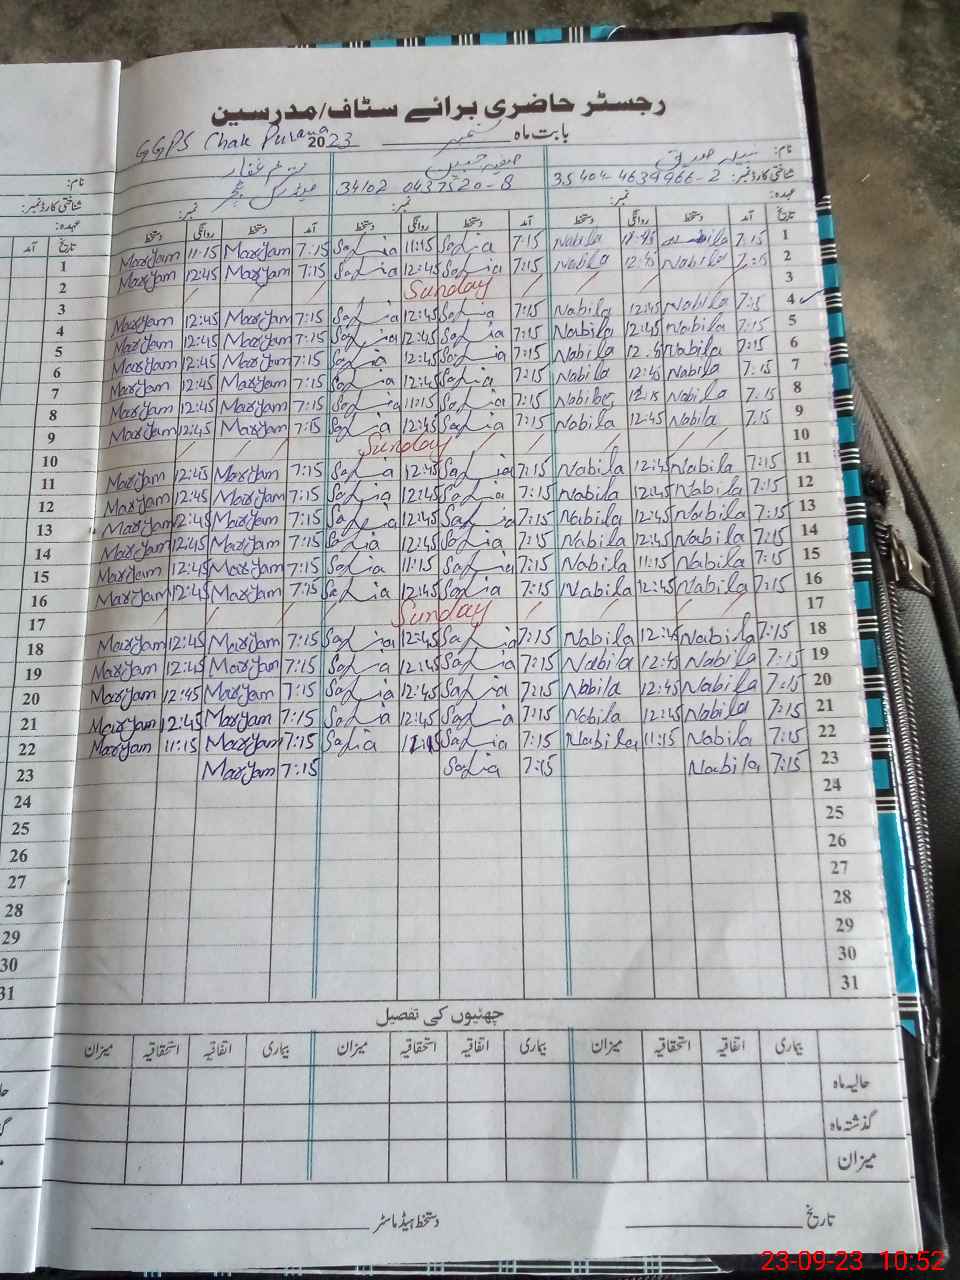 رجسٹر حاضری برائے سٹاف/مدرسین
بابت ماہ ستمبر 2023 GGPS Chak Purana
نام: نبیلہ صدیق
شناختی کارڈ نمبر: 35404-4639966-2 34102 0437520-8
عہدہ: نمبر: نمبر: نمبر:
تاریخ آمد دستخط روانگی دستخط آمد دستخط روانگی دستخط آمد دستخط روانگی دستخط
1 7:15 Nabila Nabila 7:15 Sadia 11:15 Sadia 7:15 Marıyam 11:15 Marıyam
2 7:15 Nabila 12:45 Nabila 7:15 Sadia 12:45 Sadia 7:15 Maryam 12:45 Maryam
3 Sunday
4 7:15 Nabila 12:45 Nabila 7:15 Sadia 12:45 Sadia 7:15 Maryam 12:45 Maryam
5 7:15 Nabila 12:45 Nabila 7:15 Sadia 12:45 Sadia 7:15 Maryam 12:45 Maryam
6 7:15 Nabila 12:45 Nabila 7:15 Sadia 12:45 Sadia 7:15 Maryam 12:45 Maryam
7 7:15 Nabila 12:45 Nabila 7:15 Sadia 12:45 Sadia 7:15 Maryam 12:45 Maryam
8 7:15 Nabila Nabila 7:15 Sadia 11:15 Sadia 7:15 Maryam 12:45 Maryam
9 7:15 Nabila 12:45 Nabila 7:15 Sadia 12:45 Sadia 7:15 Maryam 12:45 Maryam
10 Sunday
11 7:15 Nabila 12:45 Nabila 7:15 Sadia 12:45 Sadia 7:15 Maryam 12:45 Maryam
12 7:15 Nabila 12:45 Nabila 7:15 Sadia 12:45 Sadia 7:15 Maryam 12:45 Maryam
13 7:15 Nabila 12:45 Nabila 7:15 Sadia 12:45 Sadia 7:15 Maryam 12:45 Maryam
14 7:15 Nabila 12:45 Nabila 7:15 Sadia 12:45 Sadia 7:15 Maryam 12:45 Maryam
15 7:15 Nabila 11:15 Nabila 7:15 Sadia 11:15 Sadia 7:15 Maryam 12:45 Maryam
16 7:15 Nabila 12:45 Nabila 7:15 Sadia 12:45 Sadia 7:15 Maryam 12:45 Maryam
17 Sunday
18 7:15 Nabila 12:45 Nabila 7:15 Sadia 12:45 Sadia 7:15 Maryam 12:45 Maryam
19 7:15 Nabila 12:45 Nabila 7:15 Sadia 12:45 Sadia 7:15 Maryam 12:45 Maryam
20 7:15 Nabila 12:45 Nabila 7:15 Sadia 12:45 Sadia 7:15 Maryam 12:45 Maryam
21 7:15 Nabila 12:45 Nabila 7:15 Sadia 12:45 Sadia 7:15 Maryam 12:45 Maryam
22 7:15 Nabila 11:15 Nabila 7:15 Sadia 11:15 Sadia 7:15 Maryam 11:15 Maryam
23 7:15 Nabila 7:15 Sadia 7:15 Maryam
24
25
26
27
28
29
30
31
چھٹیوں کی تفصیل
بیماری اتفاقیہ استحقاقیہ میزان بیماری اتفاقیہ استحقاقیہ میزان بیماری اتفاقیہ استحقاقیہ میزان
حالیہ ماہ
گذشتہ ماہ
میزان
تاریخ دستخط ہیڈ ماسٹر
نام:
شناختی کارڈ نمبر:
عہدہ:
تاریخ آمد
1
2
3
4
5
6
7
8
9
10
11
12
13
14
15
16
17
18
19
20
21
22
23
24
25
26
27
28
29
30
31
23-09-23 10:52